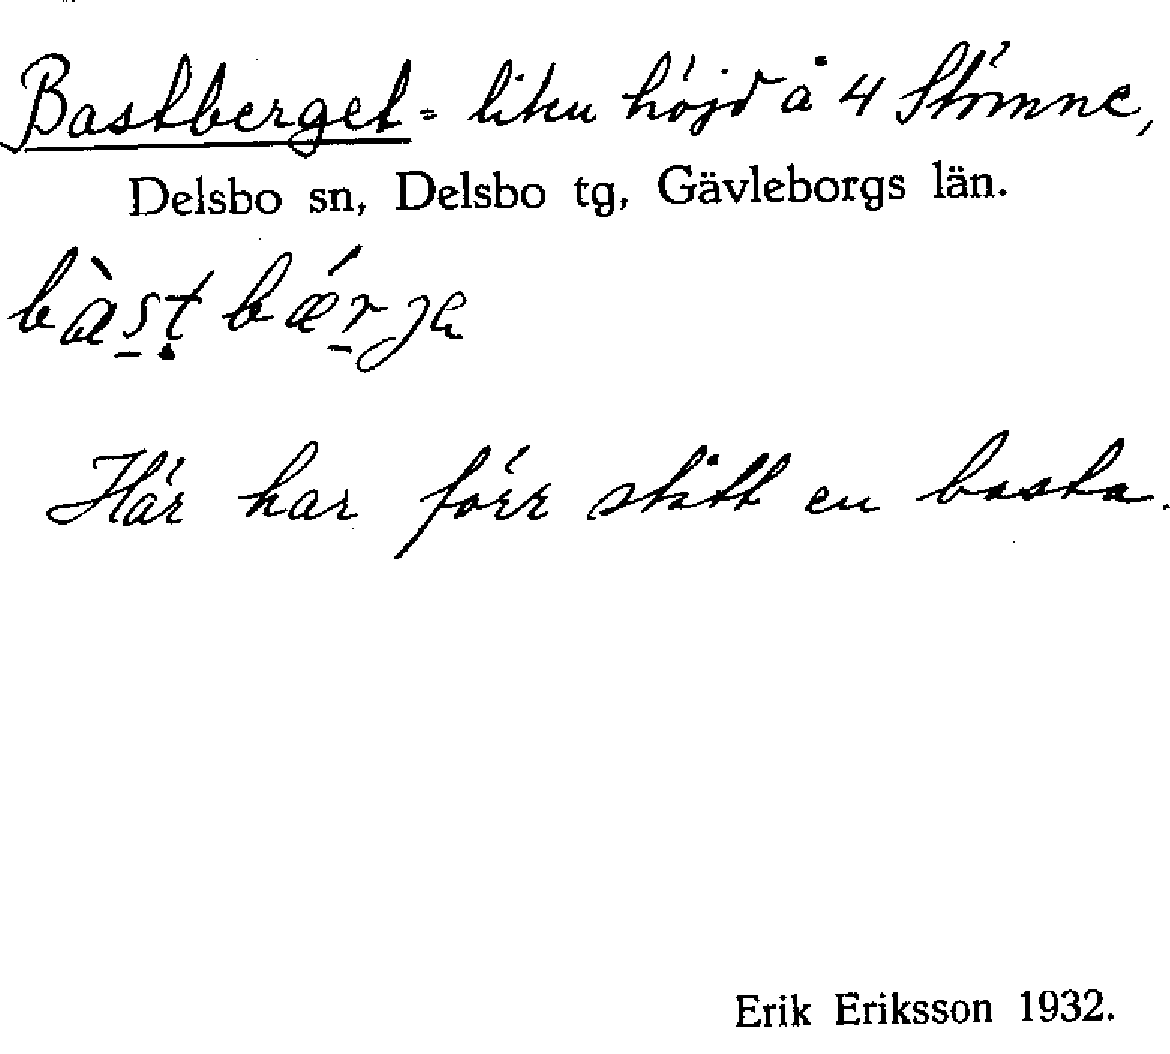 Bastberget = liten höjd å 4 Stömne,
Delsbo sn, Delsbo tg, Gävleborgs län.
bàs̠ṭbǽr̠je
Här har förr stått en basta.
Erik Eriksson 1932.